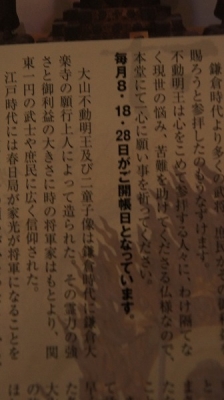 鎌倉時代より多くの将軍、庶民が
賜ろうと参拝したのもうなずけます。
不動明王は心をこめて参拝する人々に、わけ隔てな
く現世の悩み、苦難を助けてくださる仏様なので、
本堂にて一心に願い事を祈ってください。
毎月8・18・28日がご開帳日となっています。
大山不動明王及び二童子像は鎌倉時代に鎌倉大
楽寺の願行上人によって造られた。その霊力の強
さと御利益の大きさに時の将軍家はもとより、関
東一円の武士や庶民に広く信仰された。
江戸時代には春日局が家光が将軍になることを